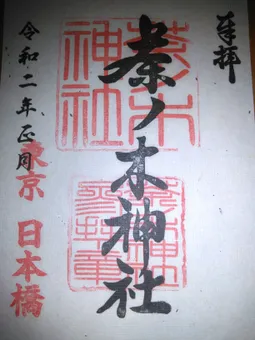 奉拝
茶ノ木神社
令和二年正月
東京 日本橋
茶ノ木
神社